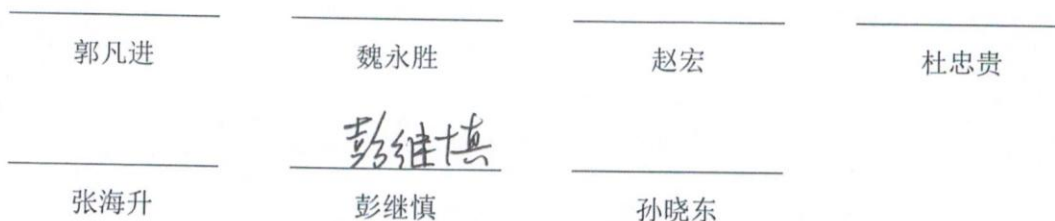 郭凡进 魏永胜 赵宏 杜忠贵
彭继慎
张海升 彭继慎 孙晓东